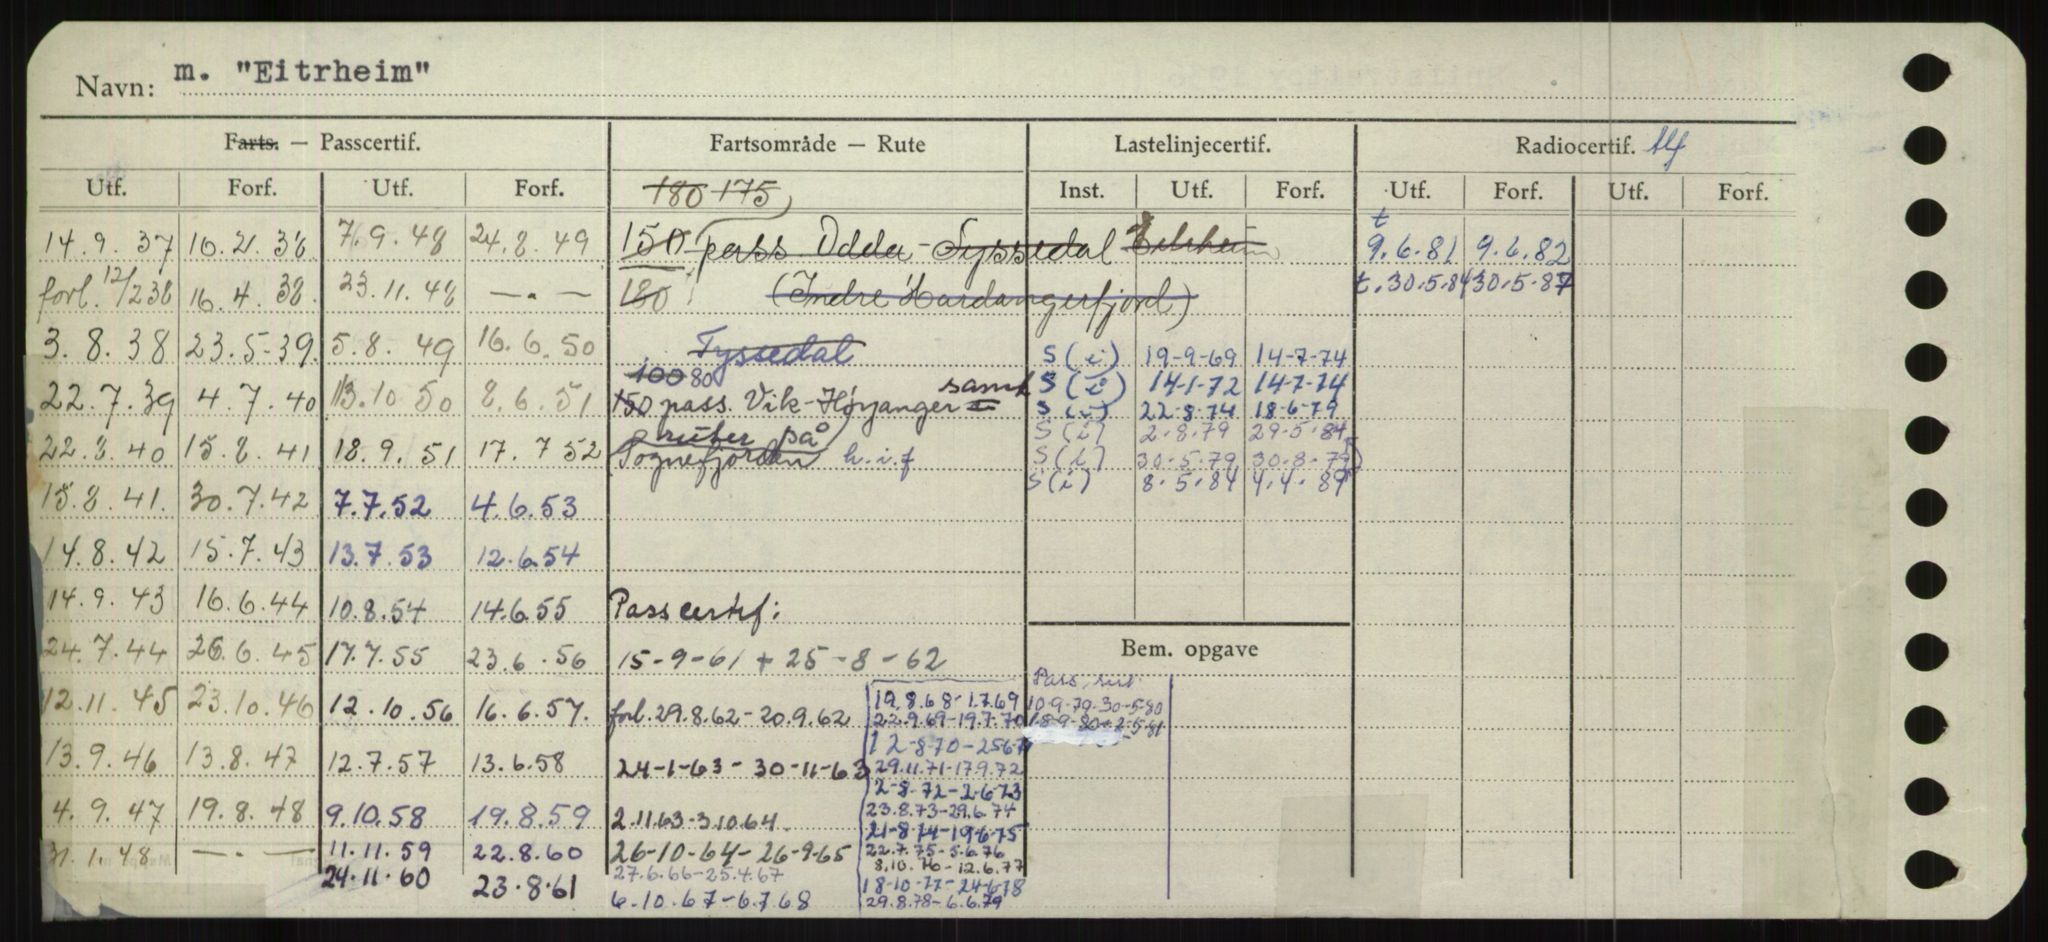 Navn: m. "Eitrheim"
Farts. — Passcertif. Fartsområde — Rute Lastelinjecertif. Radiocertif. tlf
Utf. Forf. Utf. Forf. 180 175 Inst. Utf. Forf. Utf. Forf. Utf. Forf.
14.9.37 16.2.38 7.9.48 24.8.49 150 pass. Odda - Tyssedal Eitrheim t 9.6.81 9.6.82
forl. 12/2 38 16.4.38. 23.11.48 — . — 180 (Indre Hardangerfjord) t. 30.5.84 30.5.87
3.8.38 23.5-39. 5.8.49 16.6.50 Tyssedal S (i) 19-9-69 14-7-74
100 80 S (i) 14-1-72 14-7-74
22.7.39 4.7.40 13.10 50 8.6.51 150 pass. Vik-Høyanger samt S (i) 22-8-74 18-6-79
ruter på S (i) 2.8.79 29.5.84
22.8.40 15.8.41 18.9.51 17.7 52 Sognefjorden h.i.f S (i) 30.5.79 30.8.79
S (i) 8.5.84 4.4.89
15.8.41. 30.7.42 7.7.52 4.6.53
14.8.42 15.7.43 13.7.53 12.6.54
14.9.43 16.6.44 10.8.54 14.6.55 Passcertif:
24.7.44 26.6.45 17.7.55 23.6.56 15-9-61 + 25-8-62 Bem. opgave
12.11.45 23.10.46 12.10.56 16.6.57. forl. 29.8.62-20.9.62 19.8.68-1.7.69 10-9-79-30-5-80
22.9.69-19.7.70 18-9-80-2-5-81
12-8-70-2567
13.9.46 13.8.47 12.7.57 13.6.58 24-1-63-30-11-63 29.11.71-17.9.72
2-8-72-2-6-73
4.9.47 19.8.48 9.10.58 19.8.59 2.11.63-3.10.64. 23.8.73-29.6.74
21-8-74-19-6-75
31.1.48 — . — 11.11.59 22.8.60 26-10-64-26-9-65 22.7.75-5.6.76
8.10.76-12.6.77
24.11.60 23.8.61 27.6.66-25.4.67 18-10-77-24-6-78
6.10.67-6.7.68 29.8.78-6.6.79